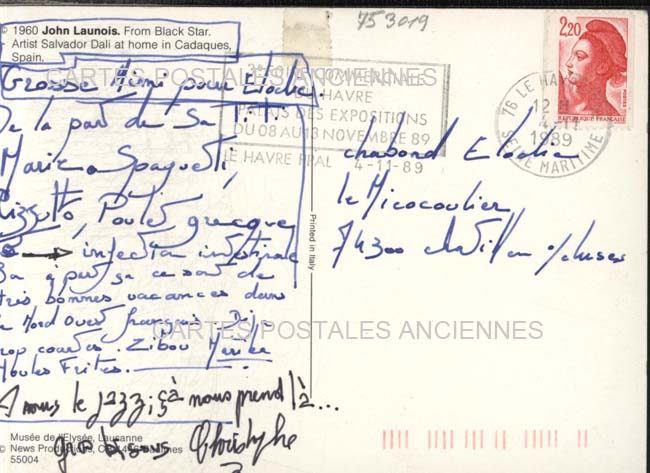 © 1960 John Launois. From Black Star.
Artist Salvador Dali at home in Cadaques,
Spain.
Grosse pour Elodie.
De la part de Sa Titi
Spaguetti,
Rizzotto, Poulet grecque
→ infection intestinale
à part sa ce sont de
très bonnes vacances dans
le Nord Ouest français. Déjà
trop courtes. Zibou
Moules Frites.
A nous le jazz, çà nous prend là...
gros bisous Christophe
Musée de l'Elysée, Lausanne
© News Productions,
55004
Printed in Italy
753019
LE HAVRE
PALAIS DES EXPOSITIONS
DU 08 AU 13 NOVEMBRE 89
LE HAVRE PPAL 4-11-89
76 LE HAVRE
12 H
1989
SEINE MARITIME
2,20
POSTES
REPUBLIQUE FRANCAISE
chabord Elodie
le Micocoulier
74300 chatillon s/cluses
CARTES POSTALES ANCIENNES
CARTES POSTALES ANCIENNES